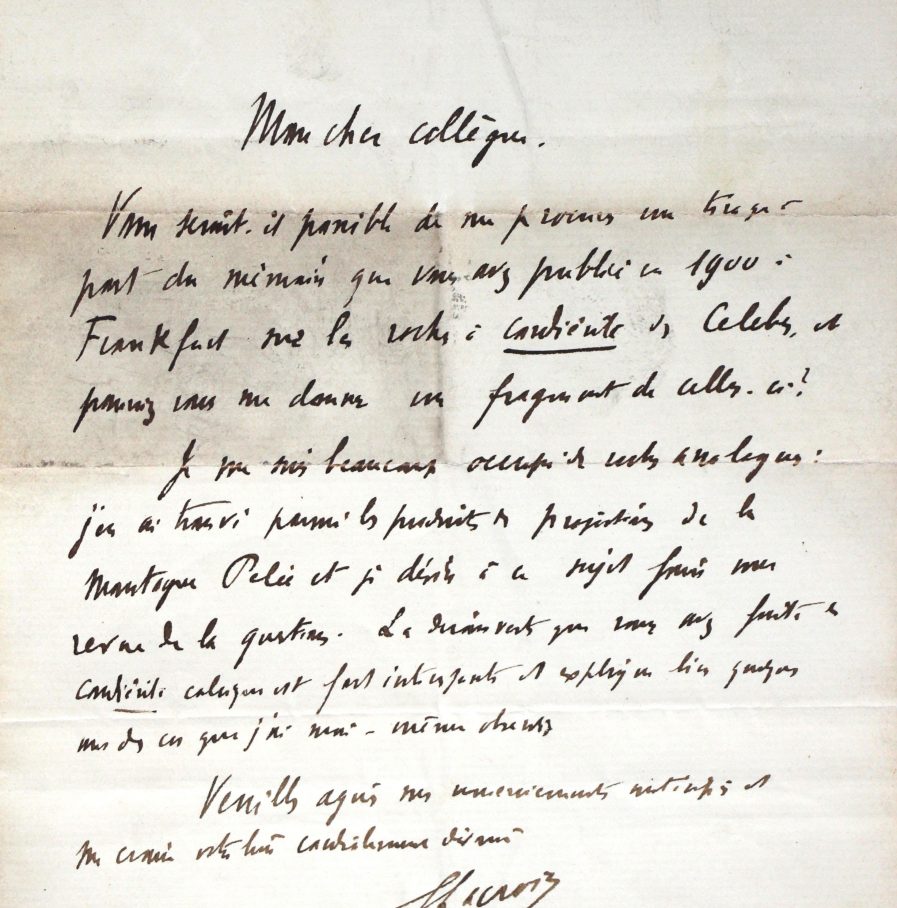 Mon cher collègue.
Vous serait-il possible de me procurer un tirage à
part du mémoire que vous avez publié en 1900 à
Frankfurt sur les roches à cordiérite de Celebes, et
pourriez vous me donner un fragment de celles-ci?
Je me suis beaucoup occupé de roches analogues:
j'en ai trouvé parmi les produits de projections de la
Montagne Pelée et je désire à ce sujet faire une
revue de la question. La découverte que vous avez faite de
cordiérite est fort intéressante et explique bien quelques
uns des cas que j'ai moi-même observés
Veuillez agréer mes remerciements anticipés et
me croire votre bien cordialement dévoué
A Lacroix